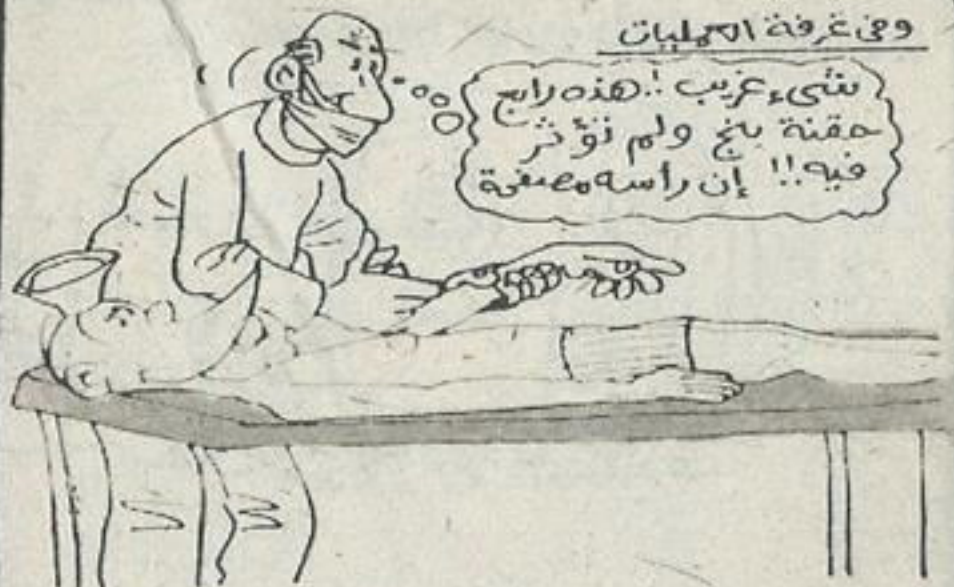 وفى غرفة العمليات
شىء غريب !! هذه رابع
حقنة بنج ولم تؤثر
فيه !! إن رأسه مصفحة